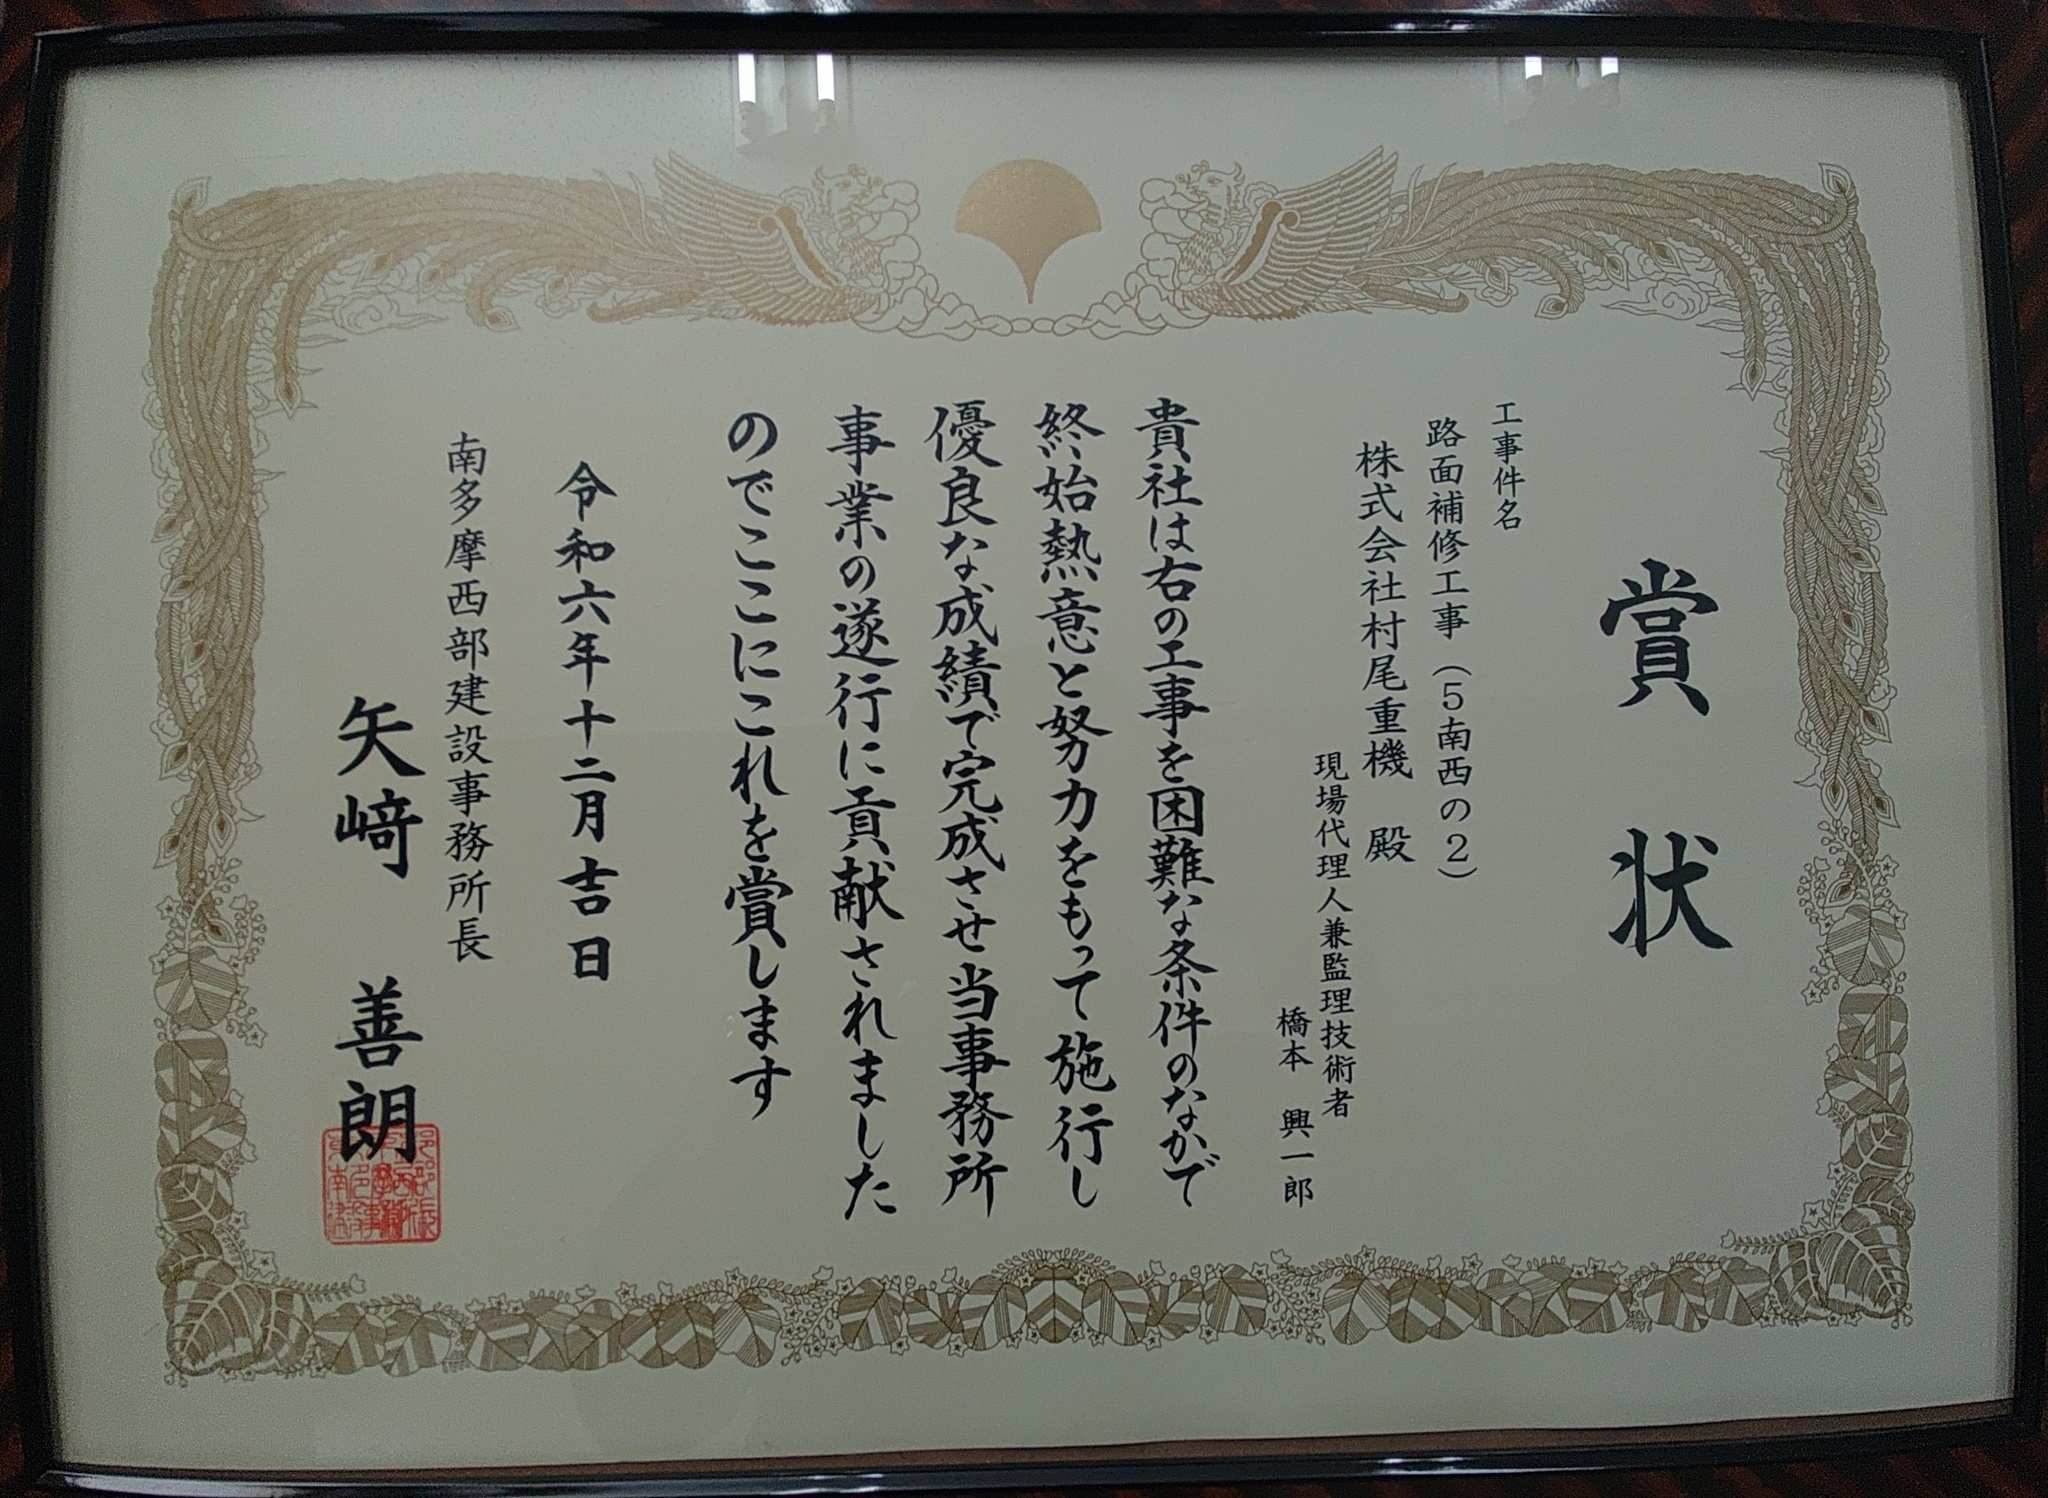 賞状
工事件名
路面補修工事（５南西の２）
株式会社村尾重機 殿
現場代理人兼監理技術者
橋本 興一郎
貴社は右の工事を困難な条件のなかで
終始熱意と努力をもって施行し
優良な成績で完成させ当事務所
事業の遂行に貢献されました
のでここにこれを賞します
令和六年十二月吉日
南多摩西部建設事務所長
矢﨑 善朗